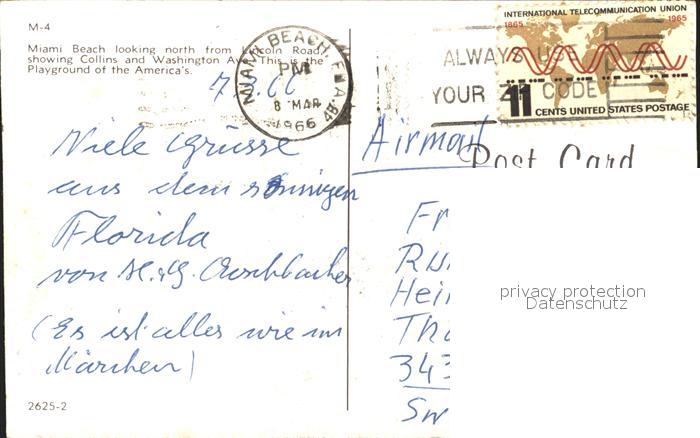 M-4
Miami Beach looking north from Lincoln Road,
showing Collins and Washington Ave. This is the
Playground of the America's.
7.3.66
MIAMI BEACH, FLA.
PM
8 MAR
1966
ALWAYS USE
YOUR ZIP CODE
INTERNATIONAL TELECOMMUNICATION UNION
1865 1965
11 CENTS UNITED STATES POSTAGE
Airmail
Post Card
Viele Grüsse
aus dem sonnigen
Florida
von
(Es ist alles wie im
Märchen)
Fr
Hei
343
Sw
privacy protection
Datenschutz
2625-2